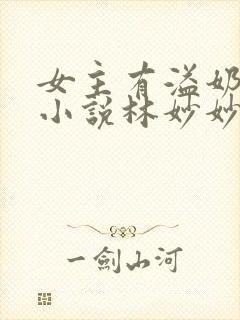 女主有溢奶
小说林妙妙
一劍山河